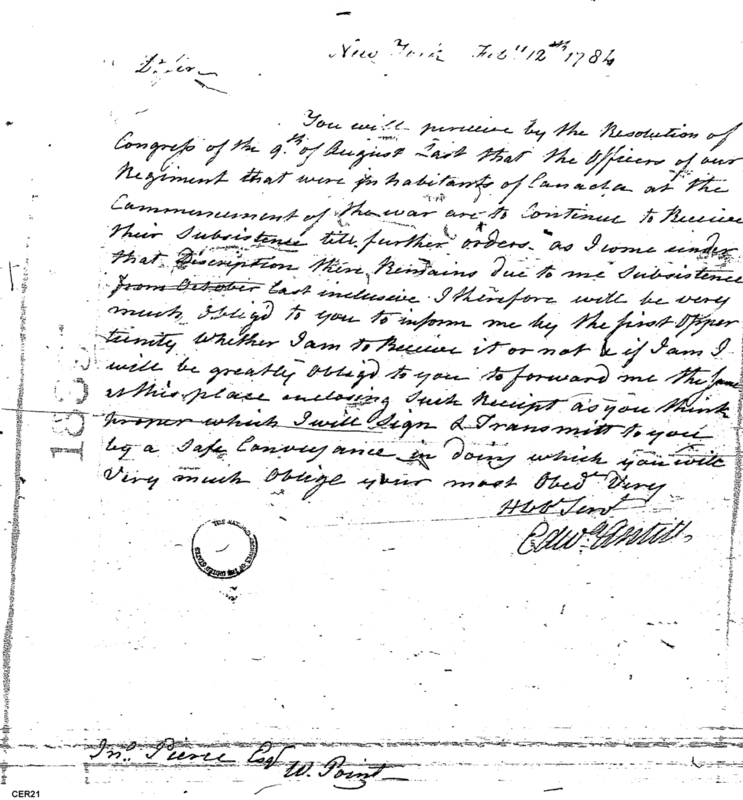 New York Feb.y 12th 1784
Dr Sir
You will perceive by the Resolution of
Congress of the 9th of August Last that the Officers of our
Regiment that were inhabitants of Canada at the
Commencement of the war are to Continue to Receive
their Subsistence till further orders. as I come under
that Discription there Remains due to me Subsistence
from October Last inclusive I therefore will be very
much Oblig'd to you to inform me by the first Opper
tunity Whether I am to Receive it or not & if I am I
will be greatly Oblig'd to you to forward me the same
at this place enclosing Such Receipt as you think
proper which I will Sign & Transmitt to you
by a Safe Conveyance in doing which you will
Very much Oblige your most Obedt Very
Hble Servt
Edwd Antill
THE NATIONAL ARCHIVES OF THE UNITED STATES
Jno. Pierce Esqr
W. Point
CER21